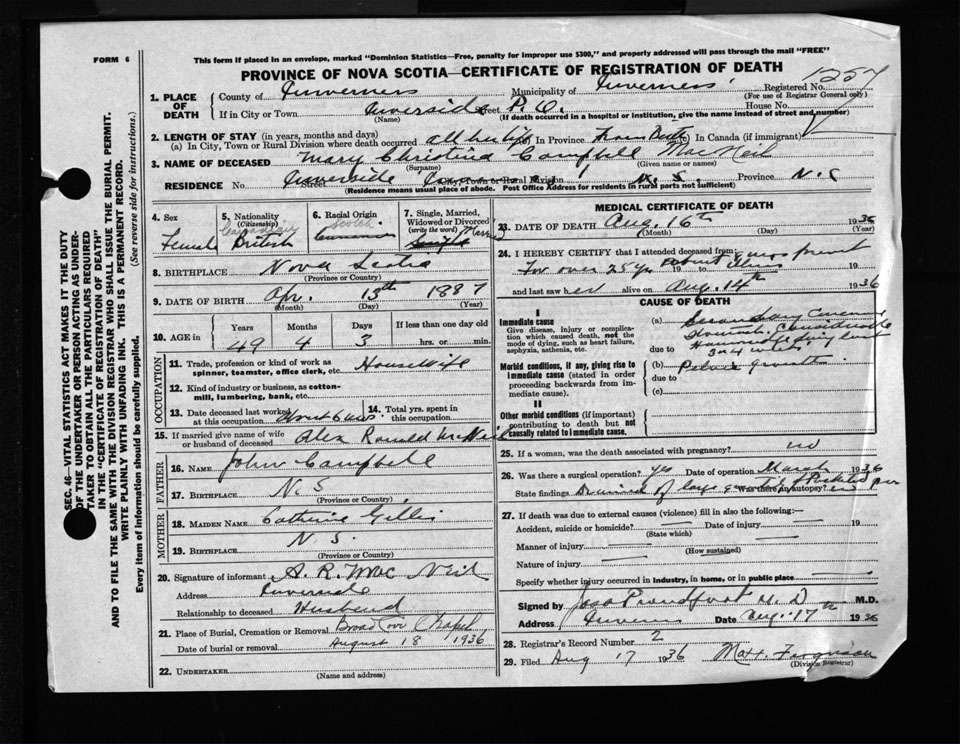 FORM 6
This form if placed in an envelope, marked "Dominion Statistics—Free, penalty for improper use $300," and properly addressed will pass through the mail "FREE"
PROVINCE OF NOVA SCOTIA—CERTIFICATE OF REGISTRATION OF DEATH
SEC. 46—VITAL STATISTICS ACT MAKES IT THE DUTY
OF THE UNDERTAKER OR PERSON ACTING AS UNDER-
TAKER TO OBTAIN ALL THE PARTICULARS REQUIRED
IN THE "CERTIFICATE OF REGISTRATION OF DEATH"
AND TO FILE THE SAME WITH THE DIVISION REGISTRAR WHO SHALL ISSUE THE BURIAL PERMIT.
WRITE PLAINLY WITH UNFADING INK. THIS IS A PERMANENT RECORD.
Every item of Information should be carefully supplied. (See reverse side for instructions.)
1. PLACE OF DEATH
County of Inverness Municipality of Inverness Registered No. 1257
(For use of Registrar General only)
If in City or Town Inverside Street P.O. House No.
(Name) (If death occurred in a hospital or institution, give the name instead of street and number)
2. LENGTH OF STAY (in years, months and days)
(a) In City, Town or Rural Division where death occurred all her life In Province from Birth In Canada (if immigrant)
3. NAME OF DECEASED Mary Christina Campbell MacNeil
(Surname) (Given name or names)
RESIDENCE No. Inverside Street City, Town or Rural Division N.S. Province N.S
(Residence means usual place of abode. Post Office Address for residents in rural parts not sufficient)
4. Sex Female
5. Nationality (Citizenship) Canadian British
6. Racial Origin Scotch
7. Single, Married, Widowed or Divorced (write the word) Married Single
8. BIRTHPLACE Nova Scotia
(Province or Country)
9. DATE OF BIRTH Apr. 13th 1887
(Month) (Day) (Year)
10. AGE in Years Months Days If less than one day old
49 4 3 hrs. or min.
OCCUPATION
11. Trade, profession or kind of work as spinner, teamster, office clerk, etc. Housewife
12. Kind of industry or business, as cotton-mill, lumbering, bank, etc.
13. Date deceased last worked at this occupation about 6 mos
14. Total yrs. spent in this occupation
15. If married give name of wife or husband of deceased Alex Ronald McNeil
FATHER
16. NAME John Campbell
17. BIRTHPLACE N.S
(Province or Country)
MOTHER
18. MAIDEN NAME Catherine Gillis
19. BIRTHPLACE N.S.
(Province or Country)
20. Signature of informant A. R. Mac Neil
Address Inverside
Relationship to deceased Husband
21. Place of Burial, Cremation or Removal Broad Cove Chapel
Date of burial or removal August 18 1936
22. UNDERTAKER
(Name and Address)
MEDICAL CERTIFICATE OF DEATH
23. DATE OF DEATH Aug. 16th 1936
(Month) (Day) (Year)
24. I HEREBY CERTIFY that I attended deceased from:
For over 25 yrs 19 to 19
and last saw her alive on Aug. 14th 1936
CAUSE OF DEATH
I
Immediate cause
Give disease, injury or complication which caused death, not the mode of dying, such as heart failure, asphyxia, asthenia, etc.
(a) Secondary
due to
3 or 4 weeks
Morbid conditions, if any, giving rise to immediate cause (stated in order proceeding backwards from immediate cause).
(b)
due to
(c)
II
Other morbid conditions (if important) contributing to death but not causally related to immediate cause.
25. If a woman, was the death associated with pregnancy? no
26. Was there a surgical operation? yes Date of operation March 1936
State findings of large Was there an autopsy?
27. If death was due to external causes (violence) fill in also the following:—
Accident, suicide or homicide? Date of injury 19
(State which)
Manner of injury
(How sustained)
Nature of injury
Specify whether injury occurred in industry, in home, or in public place
Signed by Proudfoot M.D. M.D.
Address Inverness Date Aug. 17th 1936
28. Registrar's Record Number 2
29. Filed Aug 17 1936 Ferguson
(Division Registrar)